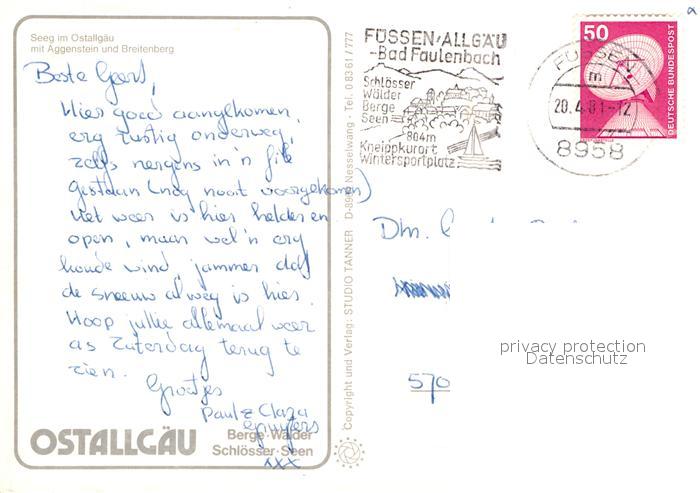 Seeg im Ostallgäu
mit Aggenstein und Breitenberg
Beste Geert,
Hier goed aangekomen,
erg rustig onderweg,
zelfs nergens in 'n file
gestaan (nog nooit voorgekomen)
Het weer is hier helder en
open, maar wel 'n erg
koude wind, jammer dat
de sneeuw al weg is hier.
Hoop jullie allemaal weer
as Zaterdag terug te
zien.
Groetjes
Paul & Clara
xxx
OSTALLGÄU
Berge · Wälder
Schlösser · Seen
Copyright und Verlag: STUDIO TANNER D-8964 Nesselwang · Tel. 0 83 61 / 777
FÜSSEN/ALLGÄU
-Bad Faulenbach
Schlösser
Wälder
Berge
Seen
804m
Kneippkurort
Wintersportplatz
FÜSSEN
E
20.4.81-12
8958
50
DEUTSCHE BUNDESPOST
Dhr.
570
privacy protection
Datenschutz